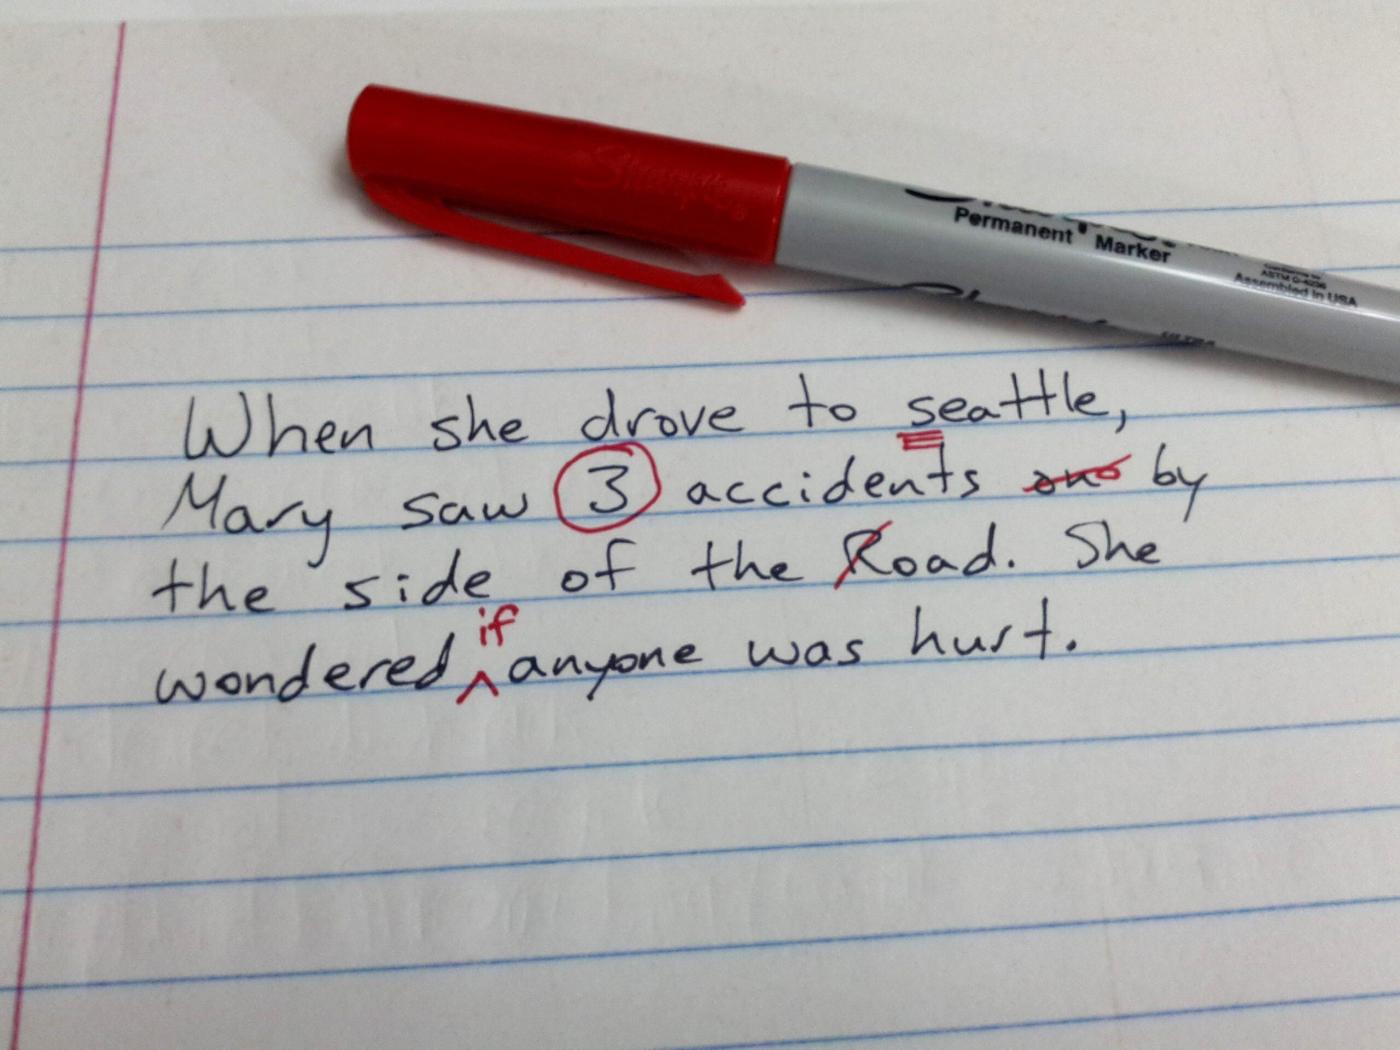 Sharpie
Permanent Marker
ASTM D-4236
Assembled in USA
When she drove to seattle,
Mary saw 3 accidents on by
the side of the Road. She
if
wondered ^ anyone was hurt.